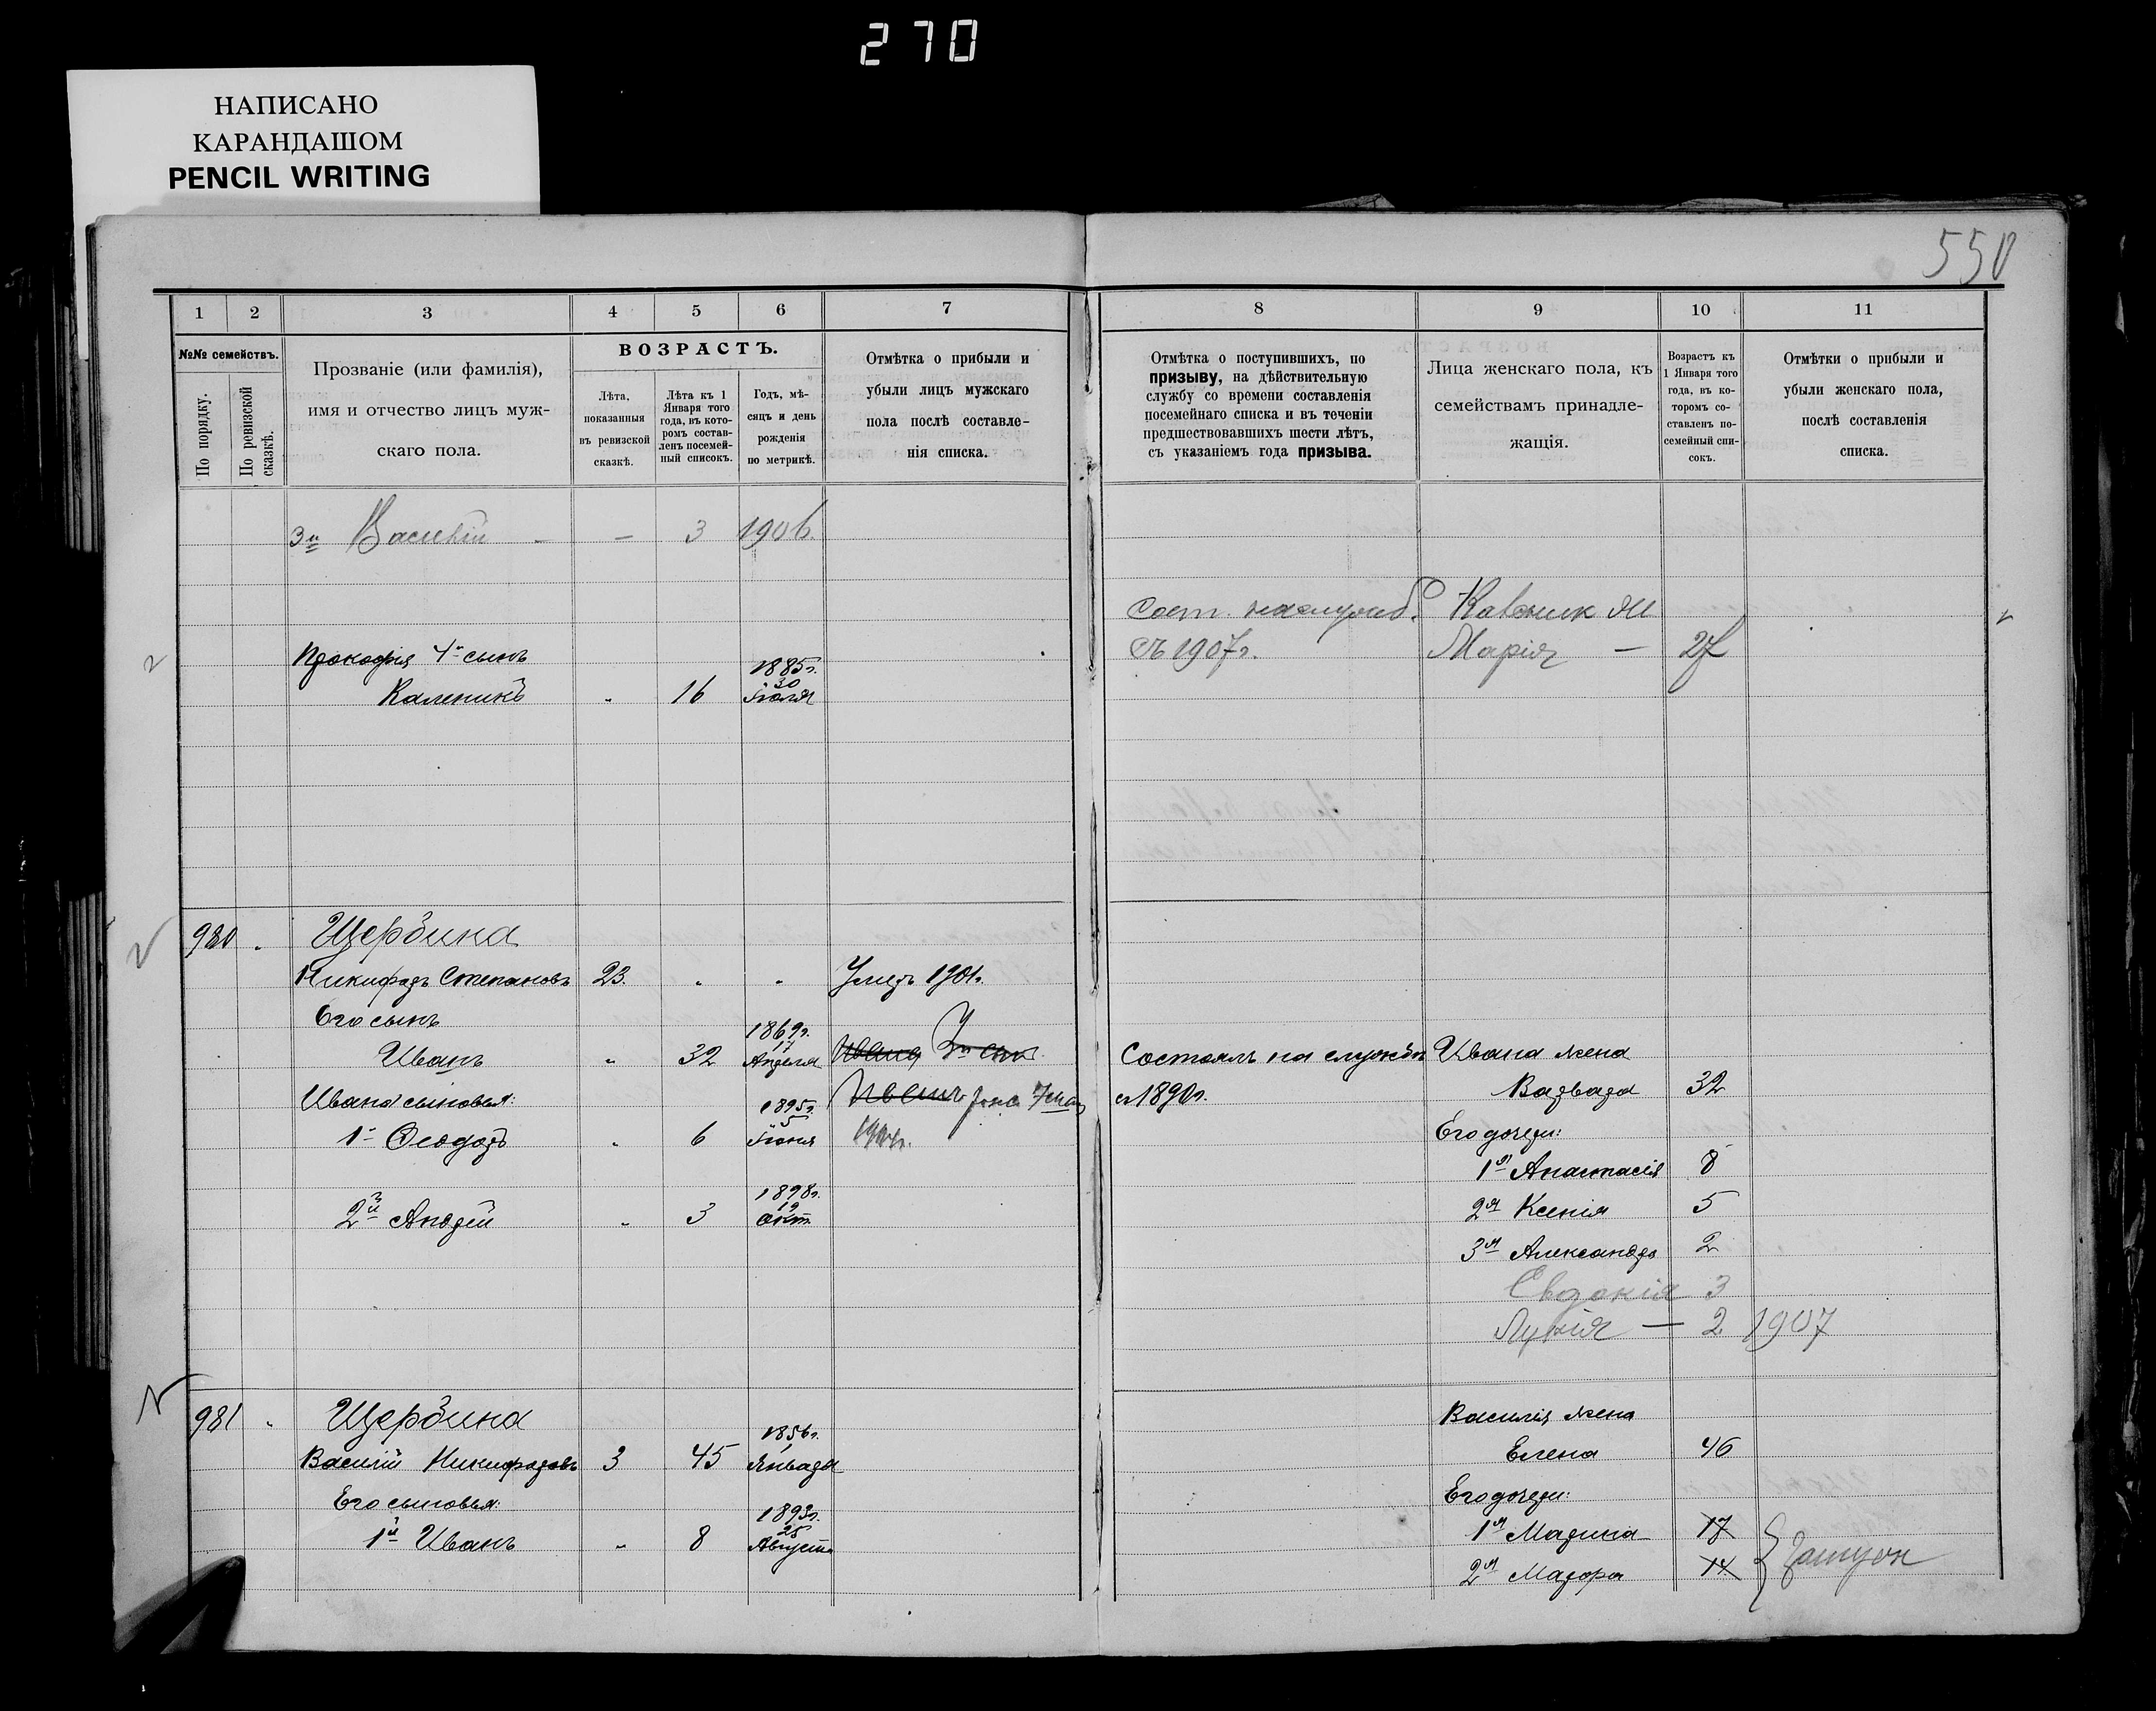 270
НАПИСАНО
КАРАНДАШОМ
PENCIL WRITING
550
1 2 3 4 5 6 7 8 9 10 11
№№ семействъ.
По порядку.
По ревизской сказкѣ.
Прозваніе (или фамилія),
имя и отчество лицъ муж-
скаго пола.
ВОЗРАСТЪ.
Лѣта,
показанныя
въ ревизской
сказкѣ.
Лѣта къ 1
Января того
года, въ кото-
ромъ состав-
ленъ посемей-
ный списокъ.
Годъ, мѣ-
сяцъ и день
рожденія
по метрикѣ.
Отмѣтка о прибыли и
убыли лицъ мужскаго
пола послѣ составле-
нія списка.
Отмѣтка о поступившихъ, по
призыву, на дѣйствительную
службу со времени составленія
посемейнаго списка и въ теченіи
предшествовавшихъ шести лѣтъ,
съ указаніемъ года призыва.
Лица женскаго пола, къ
семействамъ принадле-
жащія.
Возрастъ къ
1 Января того
года, въ ко-
торомъ со-
ставленъ по-
семейный спи-
сокъ.
Отмѣтки о прибыли и
убыли женскаго пола,
послѣ составленія
списка.
3й Василій — — 3 1906.
Сост. на служб.
съ 1907г. Марія — 27
Прокофія 4й сынъ 1885г.
30
Каленикъ " 16 Іюля
980 Щербина
Никифоръ Степановъ 23. " " Умеръ 1901г.
Его сынъ 1869г.
17
Иванъ " 32 Апреля Ивана 3й сын. Состоялъ на службѣ Ивана жена
Ивана сыновья: 1895г. с 1890г. Варвара 32
5
1й Ѳеодоръ " 6 Іюня Его дочери:
1я Анастасія 8
1898г.
19
2й Андрей " 3 Окт. 2я Ксенія 5
3я Александра 2
Евдокія 3
Лукія — 2 1907
981 Щербина Василія жена
1856г.
1
Василій Никифоровъ 3 45 Января Елена 46
Его сыновья: 1893г. Его дочери:
25
1й Иванъ " 8 Августа 1я Марина 17
2я Мавра 14 Замуж